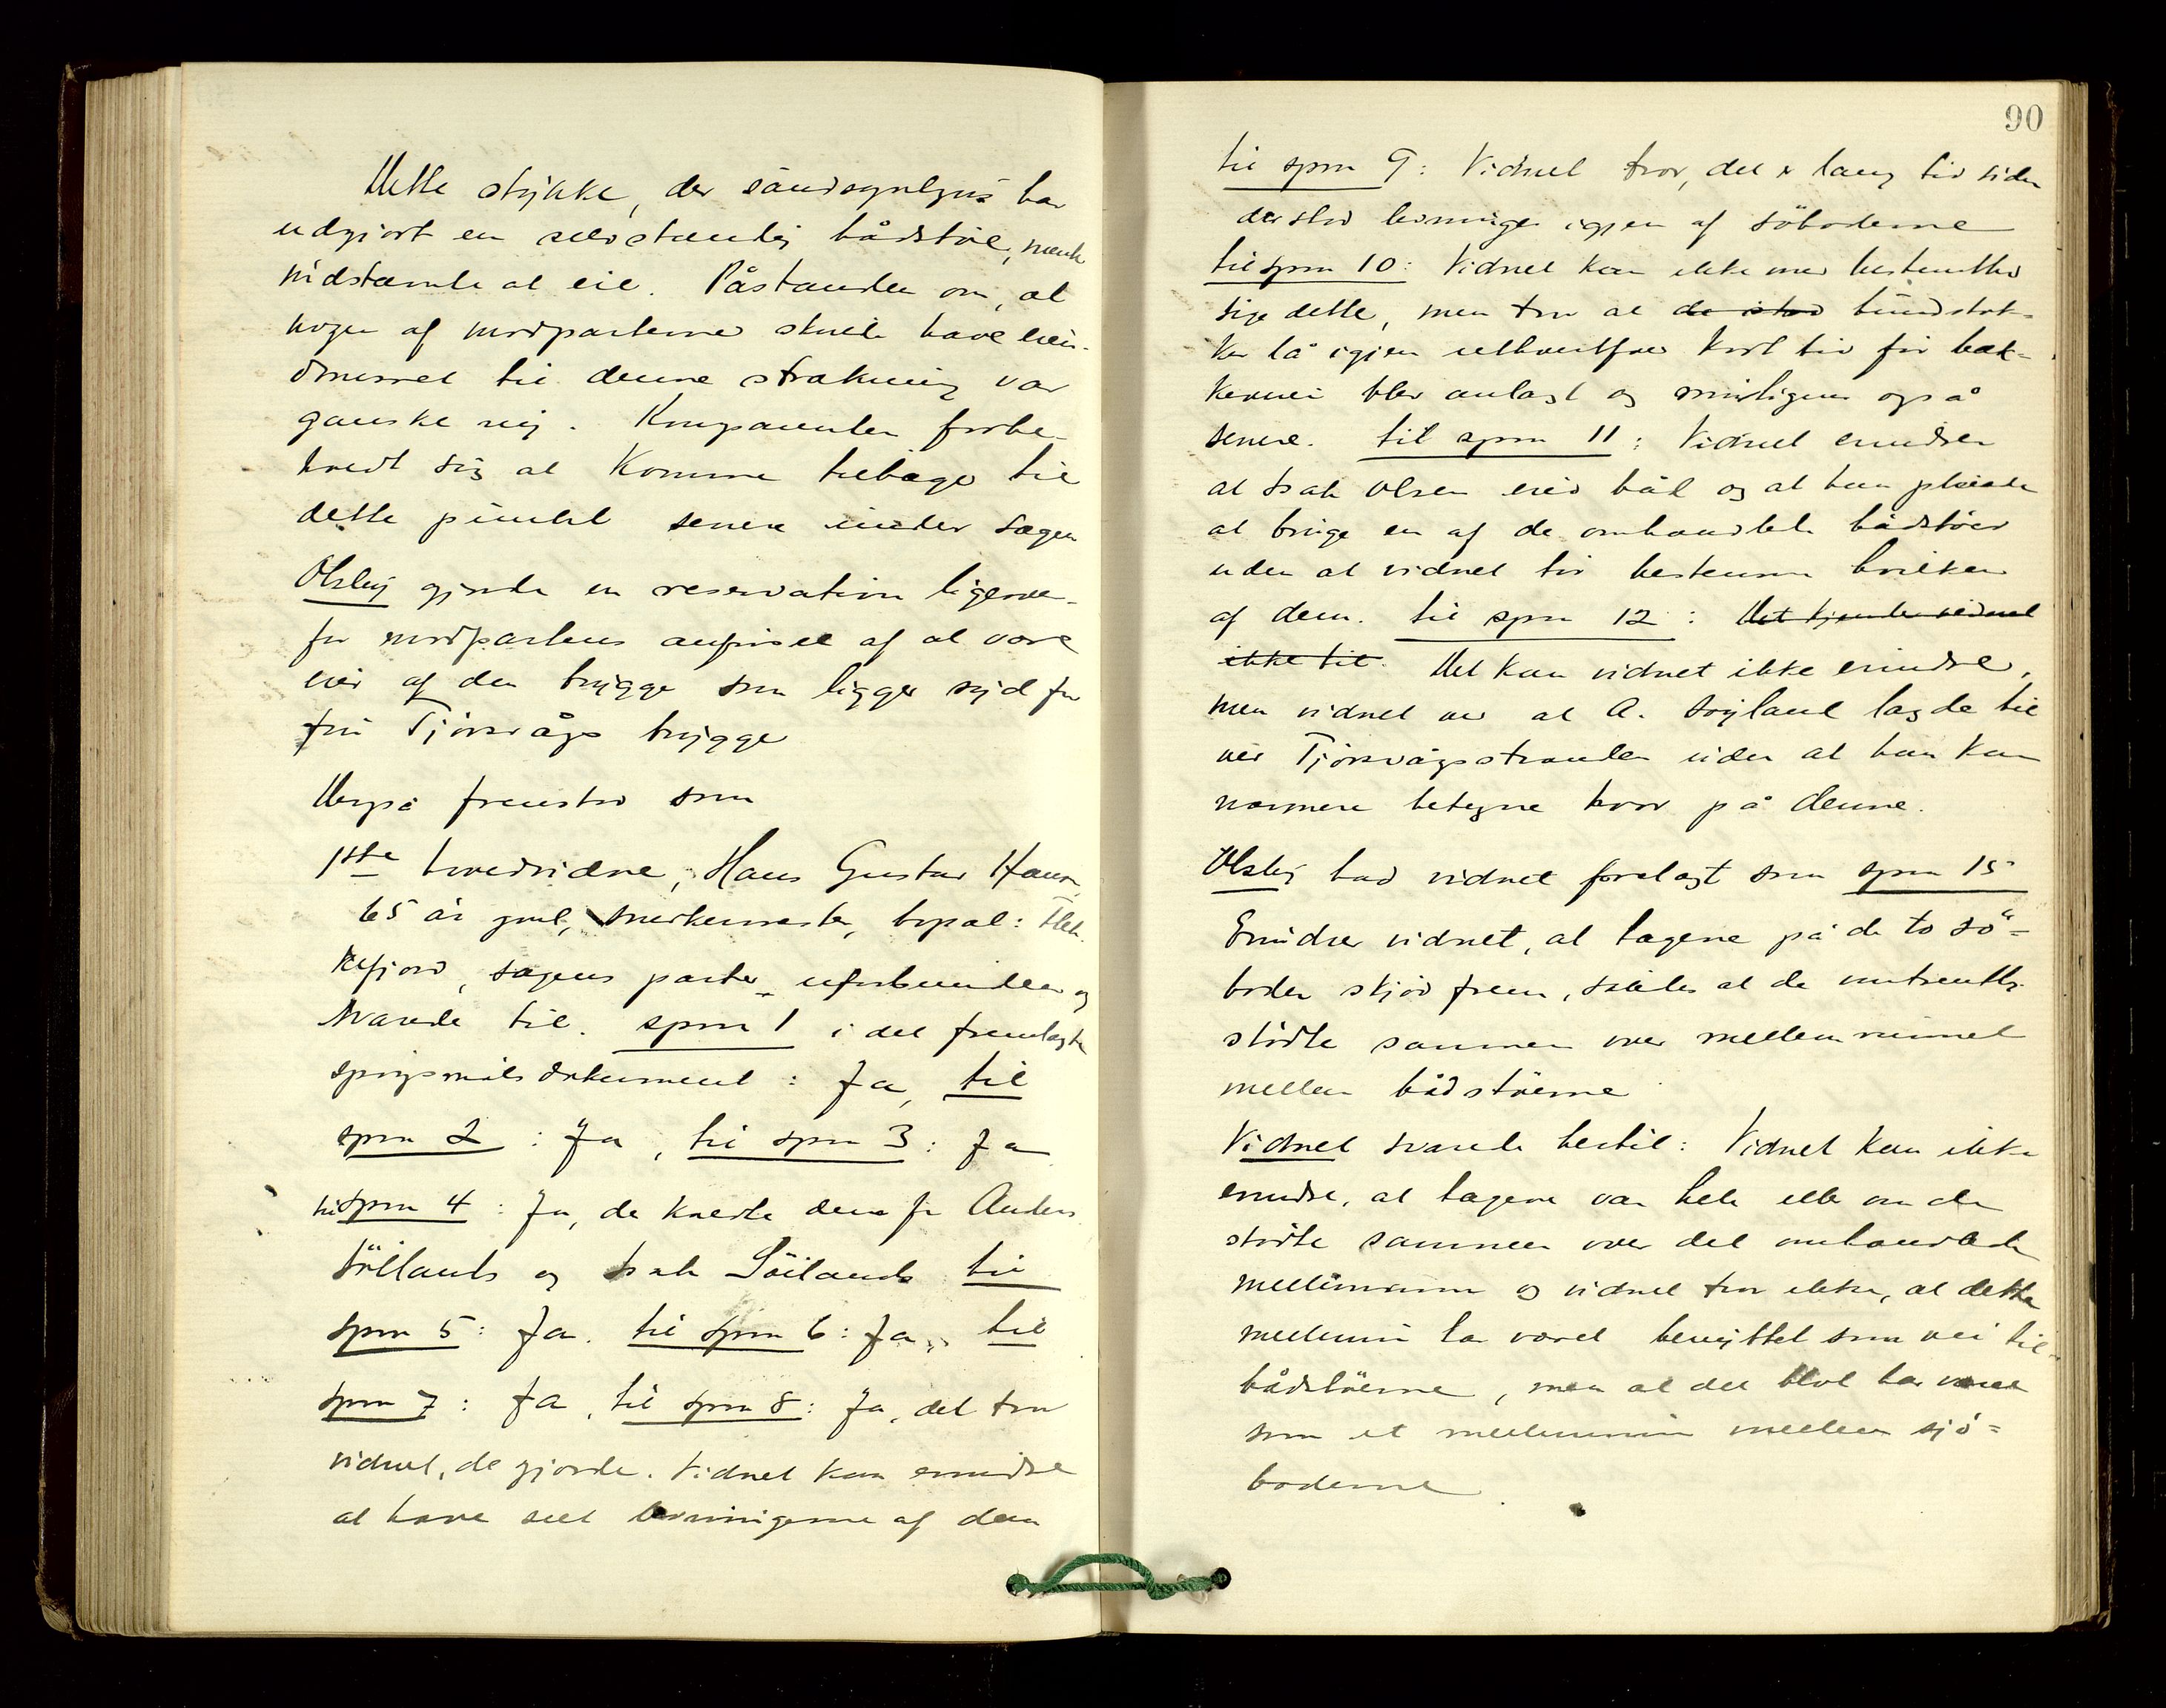 Dette stykke, der sandsynligvis har
udgjort en selvstændig bådstöe, mente
indstævnte at eie. Påstanden om, at
nogen af modparterne skulle have eien-
domsret til denne strækning var
ganske ny. Komparenten forbe-
holdt sig at komme tilbage til
dette punkt senere under sagen
Olsby gjorde en reservation ligeover-
for modpartens angivelse af at være
eier af den brygge som ligger syd for
fru Tjörsvågs brygge
Derpå fremstod som
1ste hovedvidne, Hans Gustav Hansen
65 år gml, snekkermester, bopæl: Flek-
kefjord, sagens parter uforbunden og
svarede til spm 1 i det fremlagte
spörgsmåls dokument: Ja, til
spm 2: Ja, til spm 3: Ja
til spm 4: Ja, de kaldte dem for Anders
Söilands og Isak Söilands til
spm 5: Ja. til spm 6: Ja, til
spm 7: Ja, til spm 8: Ja, det tror
vidnet, de gjorde. Vidnet kan erindre
at have seet levningerne af dem
90
til spm 9: Vidnet tror, det er lang tid siden
der stod levninger igjen af söboderne
til spm 10: Vidnet kan ikke med bestemthed
sige dette, men tror at de stod bundstok-
ker lå igjen ialtfald kort tid för bak-
keveien blev anlagt og muligens også
senere. til spm 11: Vidnet erindrer
at Isak Olsen eied båt og at han pleiede
at bruge en af de omhandlede bådstöer
uden at vidnet tör bestemme hvilken
af dem. til spm 12: Det kjender vidnet
ikke til. Det kan vidnet ikke erindre,
men vidnet ved at A. Söyland lagde til
ved Tjörsvågsstranden uden at han kan
nærmere betegne hvor på denne.
Olsby bad vidnet forelagt som spm 15
Erindrer vidnet, at tagene på de to sö-
boder skjöd frem, således at de omtrentlig
stödte sammen over mellemrummet
mellem bådstöerne
Vidnet svarede hertil: Vidnet kan ikke
erindre, at tagene var hele eller om de
stödte sammen over det omhandlede
mellemrum og vidnet tror ikke, at dette
mellemrum har været benyttet som vei til
bådstöerne, men at det blot har været
som et mellemrum mellem sjö-
boderne